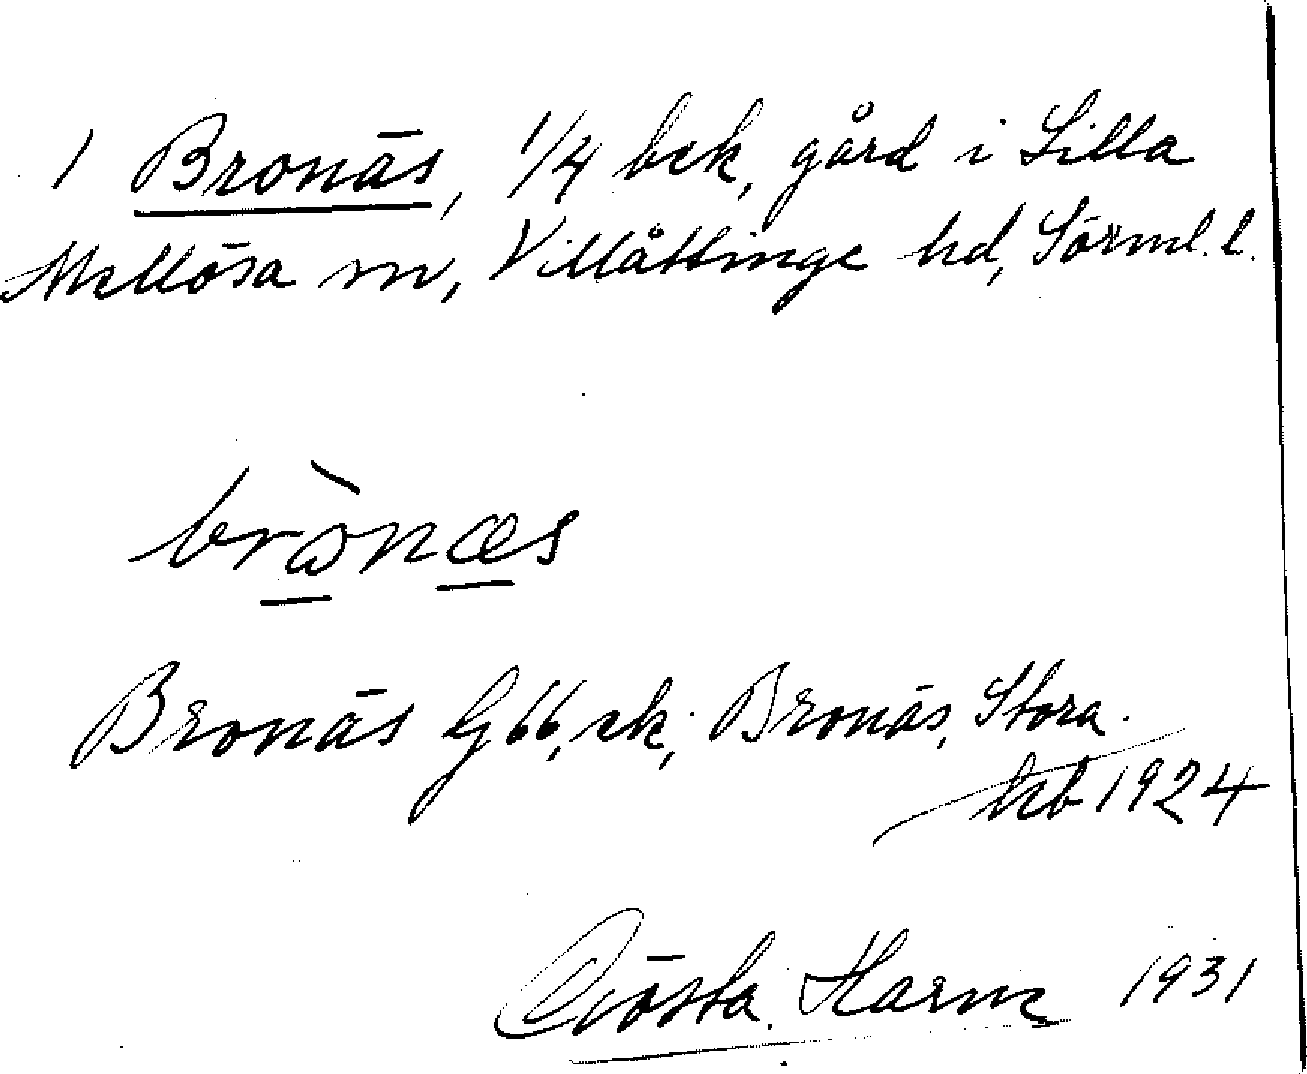 1 Bronäs, 1/4 bek, gård i Lilla
Mellösa sn, Villåttinge hd, Sörml. l.
brònæs
Bronäs G66, ek; Bronäs, Stora.
hb 1924
Gösta Harm 1931